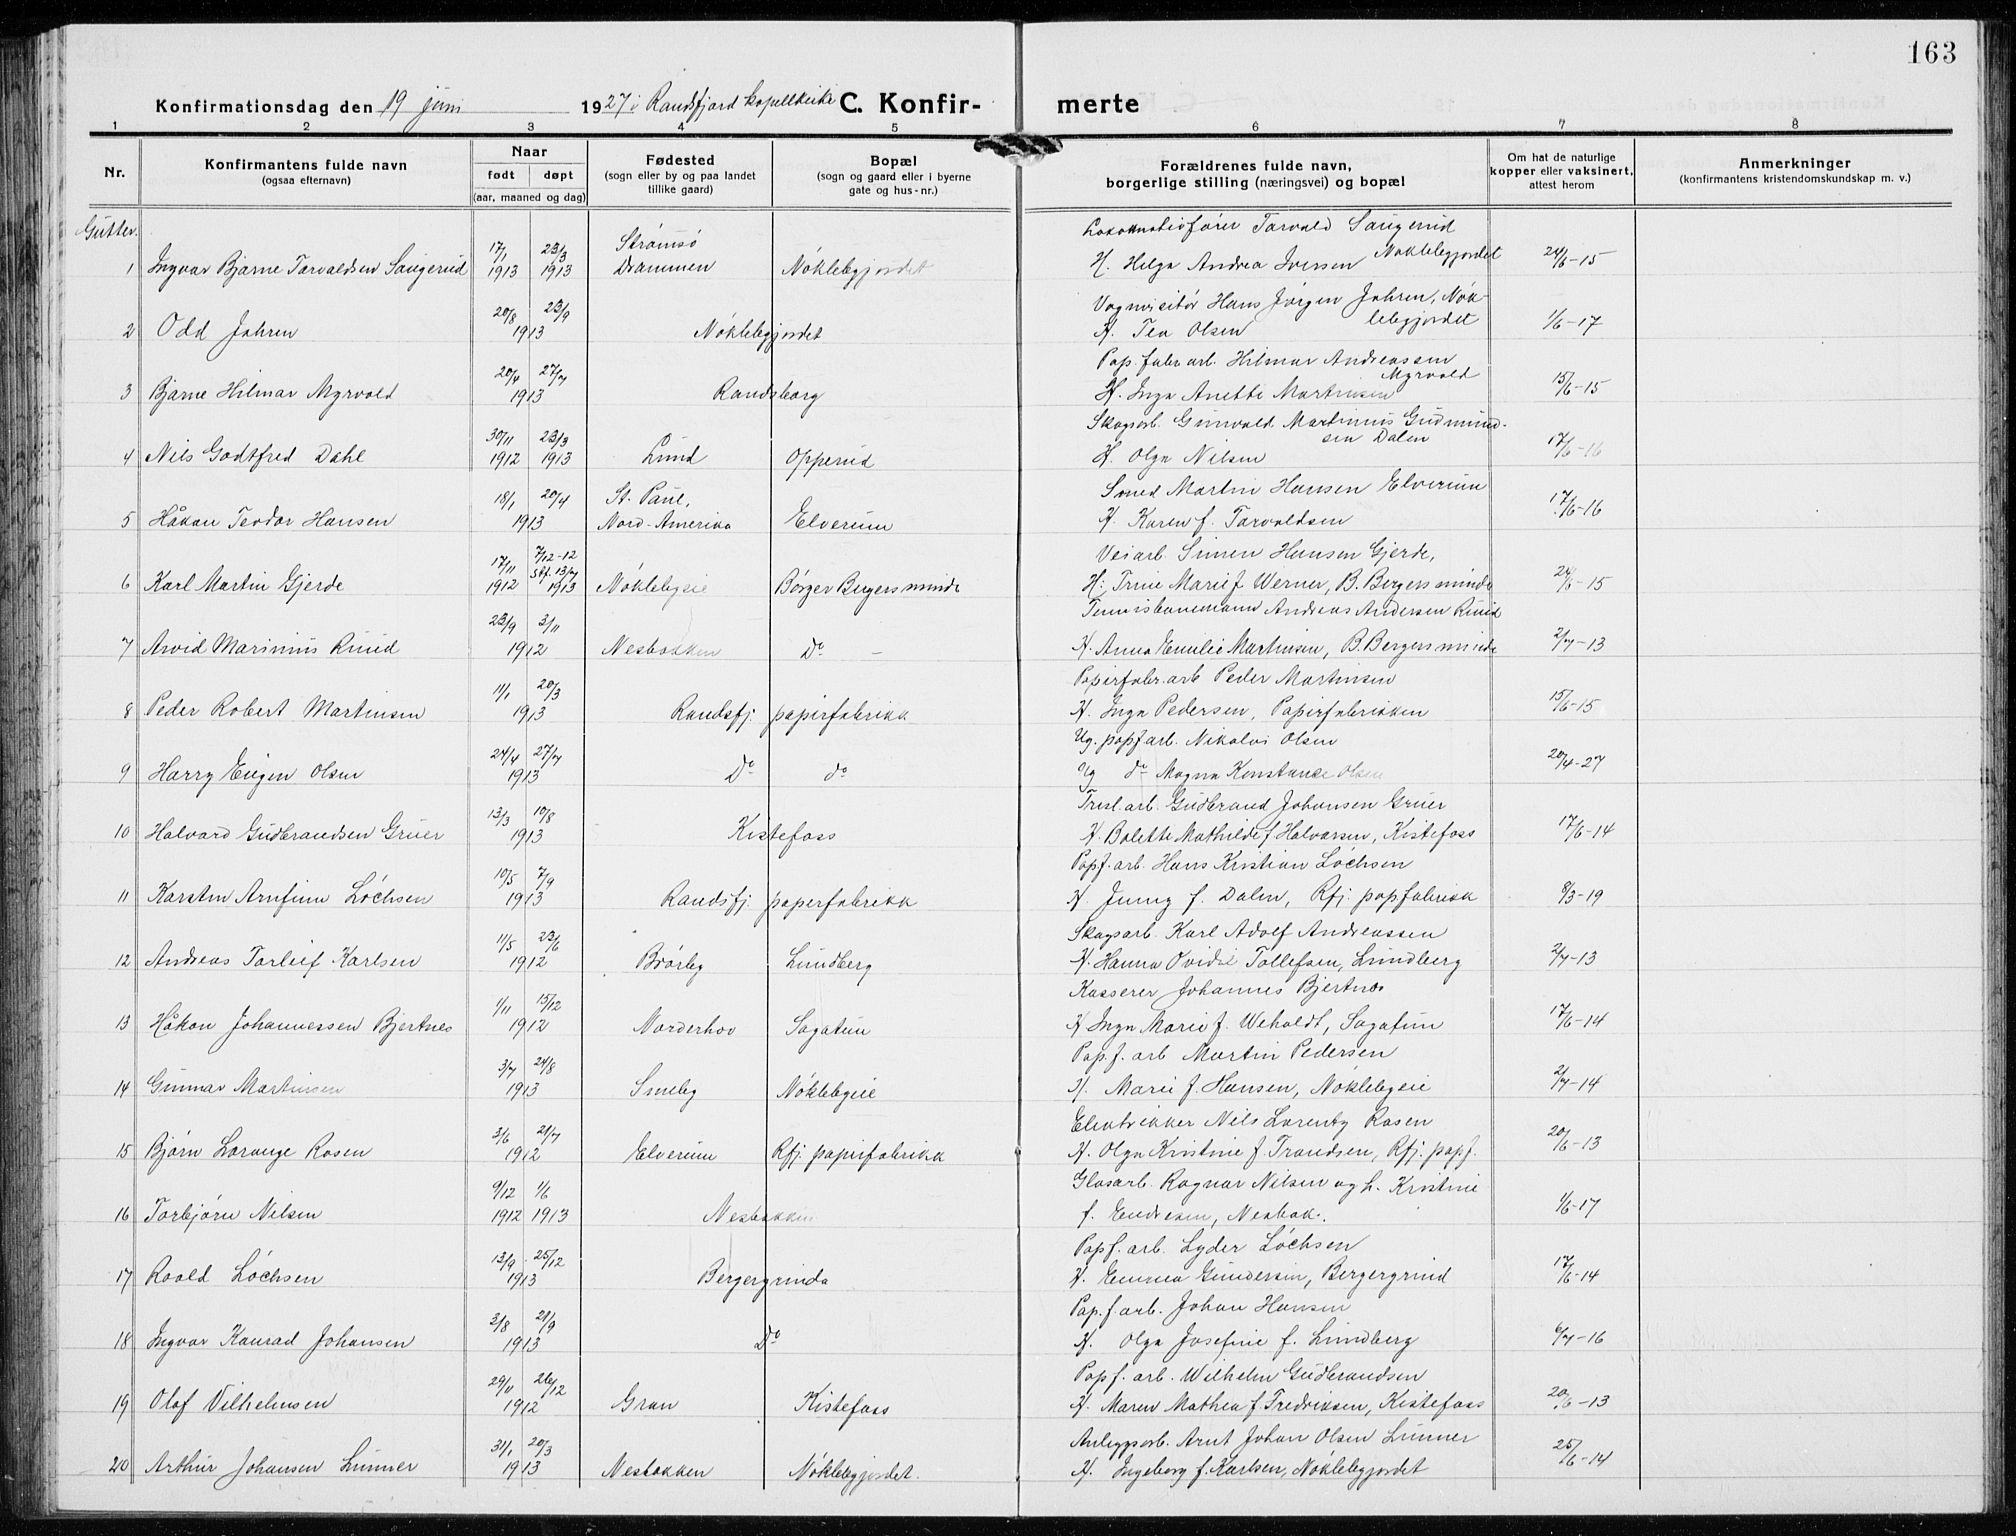 163
Konfirmationsdag den 19 juni 1927 i Randsfjord kapellkirke C. Konfir- merte
1 2 3 4 5 6 7 8
Nr. Konfirmantens fulde navn (ogsaa efternavn) Naar født døpt (aar, maaned og dag) Fødested (sogn eller by og paa landet tillike gaard) Bopæl (sogn og gaard eller i byerne gate og hus-nr.) Forældrenes fulde navn, borgerlige stilling (næringsvei) og bopæl Om hat de naturlige kopper eller vaksinert, attest herom Anmerkninger (konfirmantens kristendomskundskap m. v.)
Gutter.
17/1 23/3 Strømsø Lokomotivfører Torvald Saugerud
1 Ingvar Bjarne Torvaldsen Saugerud 1913 1913 Drammen Nøklebygjordet H. Helga Andrea Iversen Nøklebygjordet 24/6-15
20/8 23/9 Vognvisitør Hans Jørgen Johren, Nøk-
2 Odd Johren 1913 Nøklebygjordet H. Tea Olsen lebygjordet 1/6-17
20/4 27/7 Pap. fabr. arb. Hilmar Andreassen
3 Bjarne Hilmar Myrvold 1913 Randsborg H. Inga Anette Martinsen Myrvold 15/6-15
30/11 23/3 Skogsarb. Gunvald Martinius Gudmund-
4 Nils Godtfred Dahl 1912 1913 Lund Opperud H. Olga Nilsen sen Dalen 17/6-16
18/1 20/4 St. Paul, Smed Martin Hansen Elverum
5 Håkon Teodor Hansen 1913 Nord-Amerika Elverum H. Karen f. Torvaldsen 17/6-16
17/11 7/12-12 Stf. 13/7 Veiarb. Simen Hansen Gjerde,
6 Karl Martin Gjerde 1912 1913 Nøklebyeie Børger Bergersminde H. Trine Marie f Werner, B. Bergersminde 24/6-15
23/9 3/11 Tennisbanemann Andreas Andersen Ruud
7 Arvid Marinius Ruud 1912 Nesbakken Do - H. Anna Emilie Martinsen, B. Bergersminde 2/7-13
11/1 20/3 Papirfabr. arb Peder Martinsen
8 Peder Robert Martinsen 1913 Randsfj. papirfabrikk H. Inga Pedersen, Papirfabrikken 15/6-15
24/4 27/7 Ug. papf arb. Nikolai Olsen
9 Harry Eugen Olsen 1913 Do do og do Magna Konstanse Olsen 20/4-27
13/3 10/8 Tresl. arb. Gudbrand Johansen Gruer
10 Halvard Gudbrandsen Gruer 1913 Kistefoss H. Bolette Mathilde f Halvorsen, Kistefoss 17/6-14
10/5 7/9 Papf. arb. Hans Kristian Løchsen
11 Karsten Arnfinn Løchsen 1913 Randsfj. papirfabrikk H. Jenny f. Dalen, Rfj. papfabrikk 8/3-19
11/5 23/6 Skogsarb. Karl Adolf Andreassen
12 Andreas Torleif Karlsen 1912 Brørby Lundberg H. Hanna Ovidie Tollefsen, Lundberg 2/7-13
1/11 15/12 Kasserer Johannes Bjertnes
13 Håkon Johannessen Bjertnes 1912 Norderhov Sagatun H Inga Marie f. Weholdt, Sagatun 17/6-14
3/7 24/8 Pap. f. arb Martin Pedersen
14 Gunnar Martinsen 1913 Smeby Nøklebyeie H. Marie f. Hansen, Nøklebyeie 2/7-14
3/6 21/7 Elektrikker Nils Lorentz Rosen
15 Bjørn Lorange Rosen 1912 Elverum Rfj. papirfabrikk H. Olga Kristine f. Trondsen, Rfj. papf. 20/6-13
9/12 1/6 Glasarb. Ragnar Nilsen og h. Kristine
16 Torbjørn Nilsen 1912 1913 Nesbakken f. Endresen, Nesbak. 1/6-17
13/9 25/12 Papf. arb. Lyder Løchsen
17 Roald Løchsen 1913 Bergergrinda H. Emma Gundersen, Bergergrind 17/6-14
2/8 21/9 Pap. f. arb. Johan Hansen
18 Ingvar Konrad Johansen 1913 Do H. Olga Josefine f. Lundberg 6/7-16
29/11 26/12 Papf. arb. Wilhelm Gudbrandsen
19 Olaf Vilhelmsen 1912 Gran Kistefoss H. Maren Mathea f. Fredriksen, Kistefoss 20/6-13
31/1 20/3 Anleggsarb. Arnt Johan Olsen Lunner
20 Arthur Johansen Lunner 1913 Nesbakken Nøklebygjordet. H. Ingeborg f. Karlsen, Nøklebygjordet 25/6-14